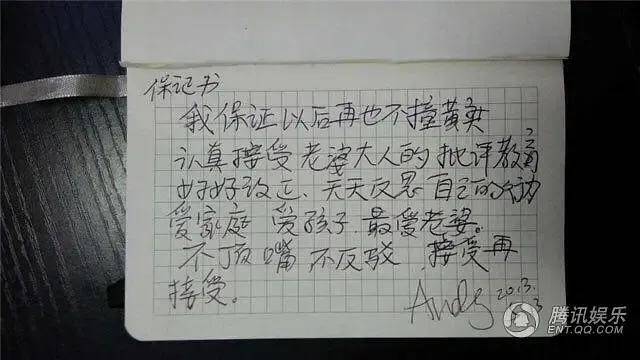 保证书
我保证以后再也不撞黄奕
认真接受老婆大人的批评教育
好好改正、天天反思自己的行动
爱家庭 爱孩子.最爱老婆。
不顶嘴 不反驳.接受再
接受。
Andy 2013.
腾讯娱乐
ENT.QQ.COM